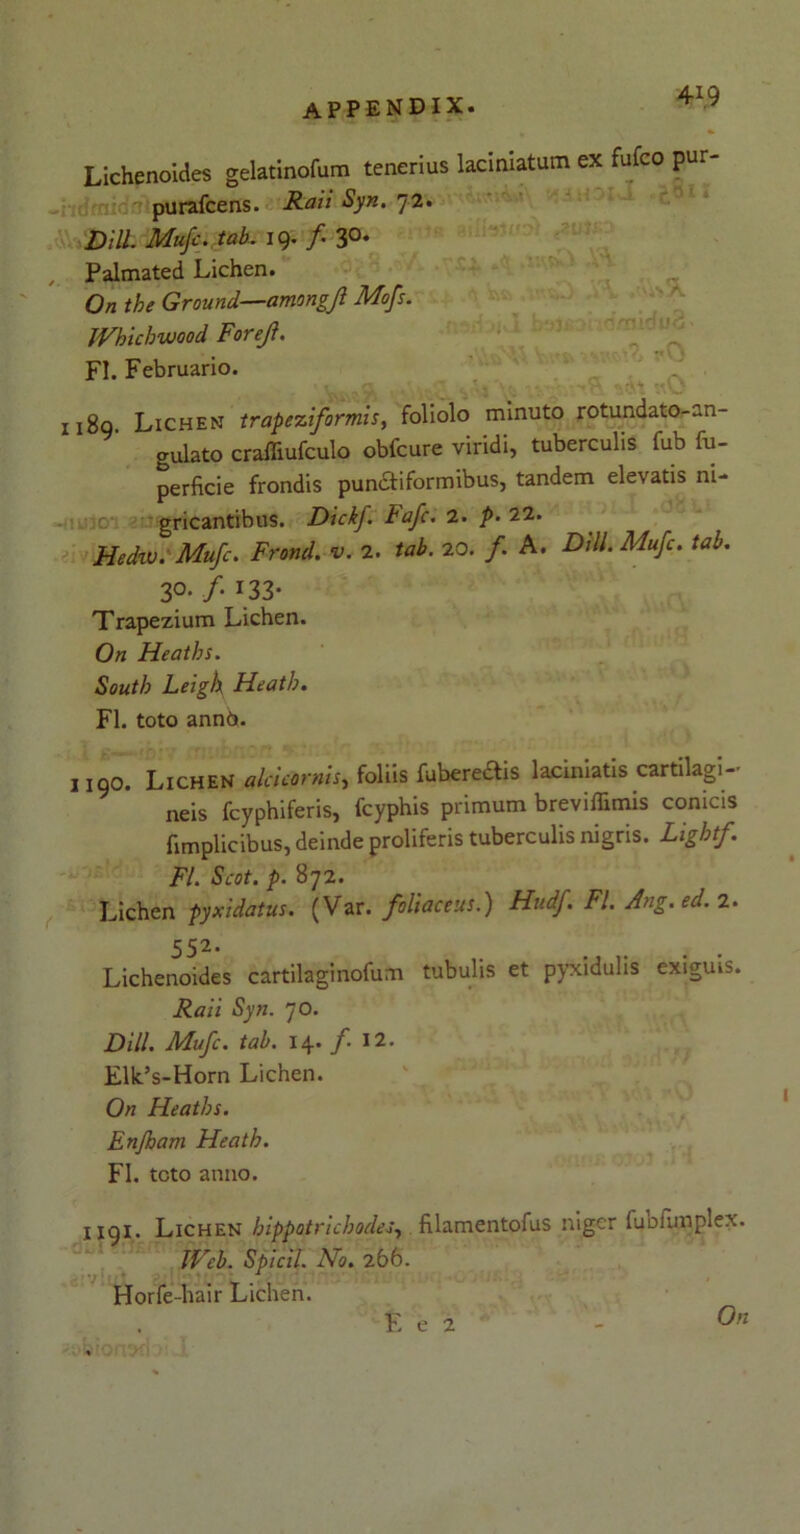 APPENDIX. 419
Lichenoides gelatinoſum tenerius laciniatum ex fuſco pur-
puraſcens. Raii Syn. 72.
Dill. Muſc. tab. 19. f. 30.
Palmated Lichen.
On the Ground—amongſt Moſs.
Whichwood Foreſt.
Fl. Februario.
1189. LICHEN trapeziformis, foliolo minuto rotundato-an-
gulato craſſiuſculo obſcure viridi, tuberculis ſub ſu-
perficie frondis punctiformibus, tandem elevatis ni-
gricantibus. Dickſ. Faſc. 2. p. 22.
Hedw. Muſc. Frond. v. 2. tab. 20. f. A. Dill. Muſc. tab.
30. f. 133.
Trapezium Lichen.
On Heaths.
South Leigh Heath.
Fl. toto annò.
1190. LICHEN alcicornis, foliis ſuberectis laciniatis cartilagi-
neis ſcyphiferis, ſcyphis primum breviſſimis conicis
ſimplicibus, deinde proliferis tuberculis nigris. Lightf.
Fl. Scot. p. 872.
Lichen pyxidatus. (Var. foliaceus.) Hudſ. Fl. Ang. ed. 2.
552.
Lichenoides cartilaginoſum tubulis et pyxidulis exiguis.
Raii Syn. 70.
Dill. Muſc. tab. 14. f. 12.
Elk's-Horn Lichen.
On Heaths.
Enſham Heath.
Fl. toto anno.
1191. LICHEN hippotrichodes, filamentoſus niger ſubſimplex.
Web. Spicil. No. 266.
Horſe-hair Lichen.
E e 2 On